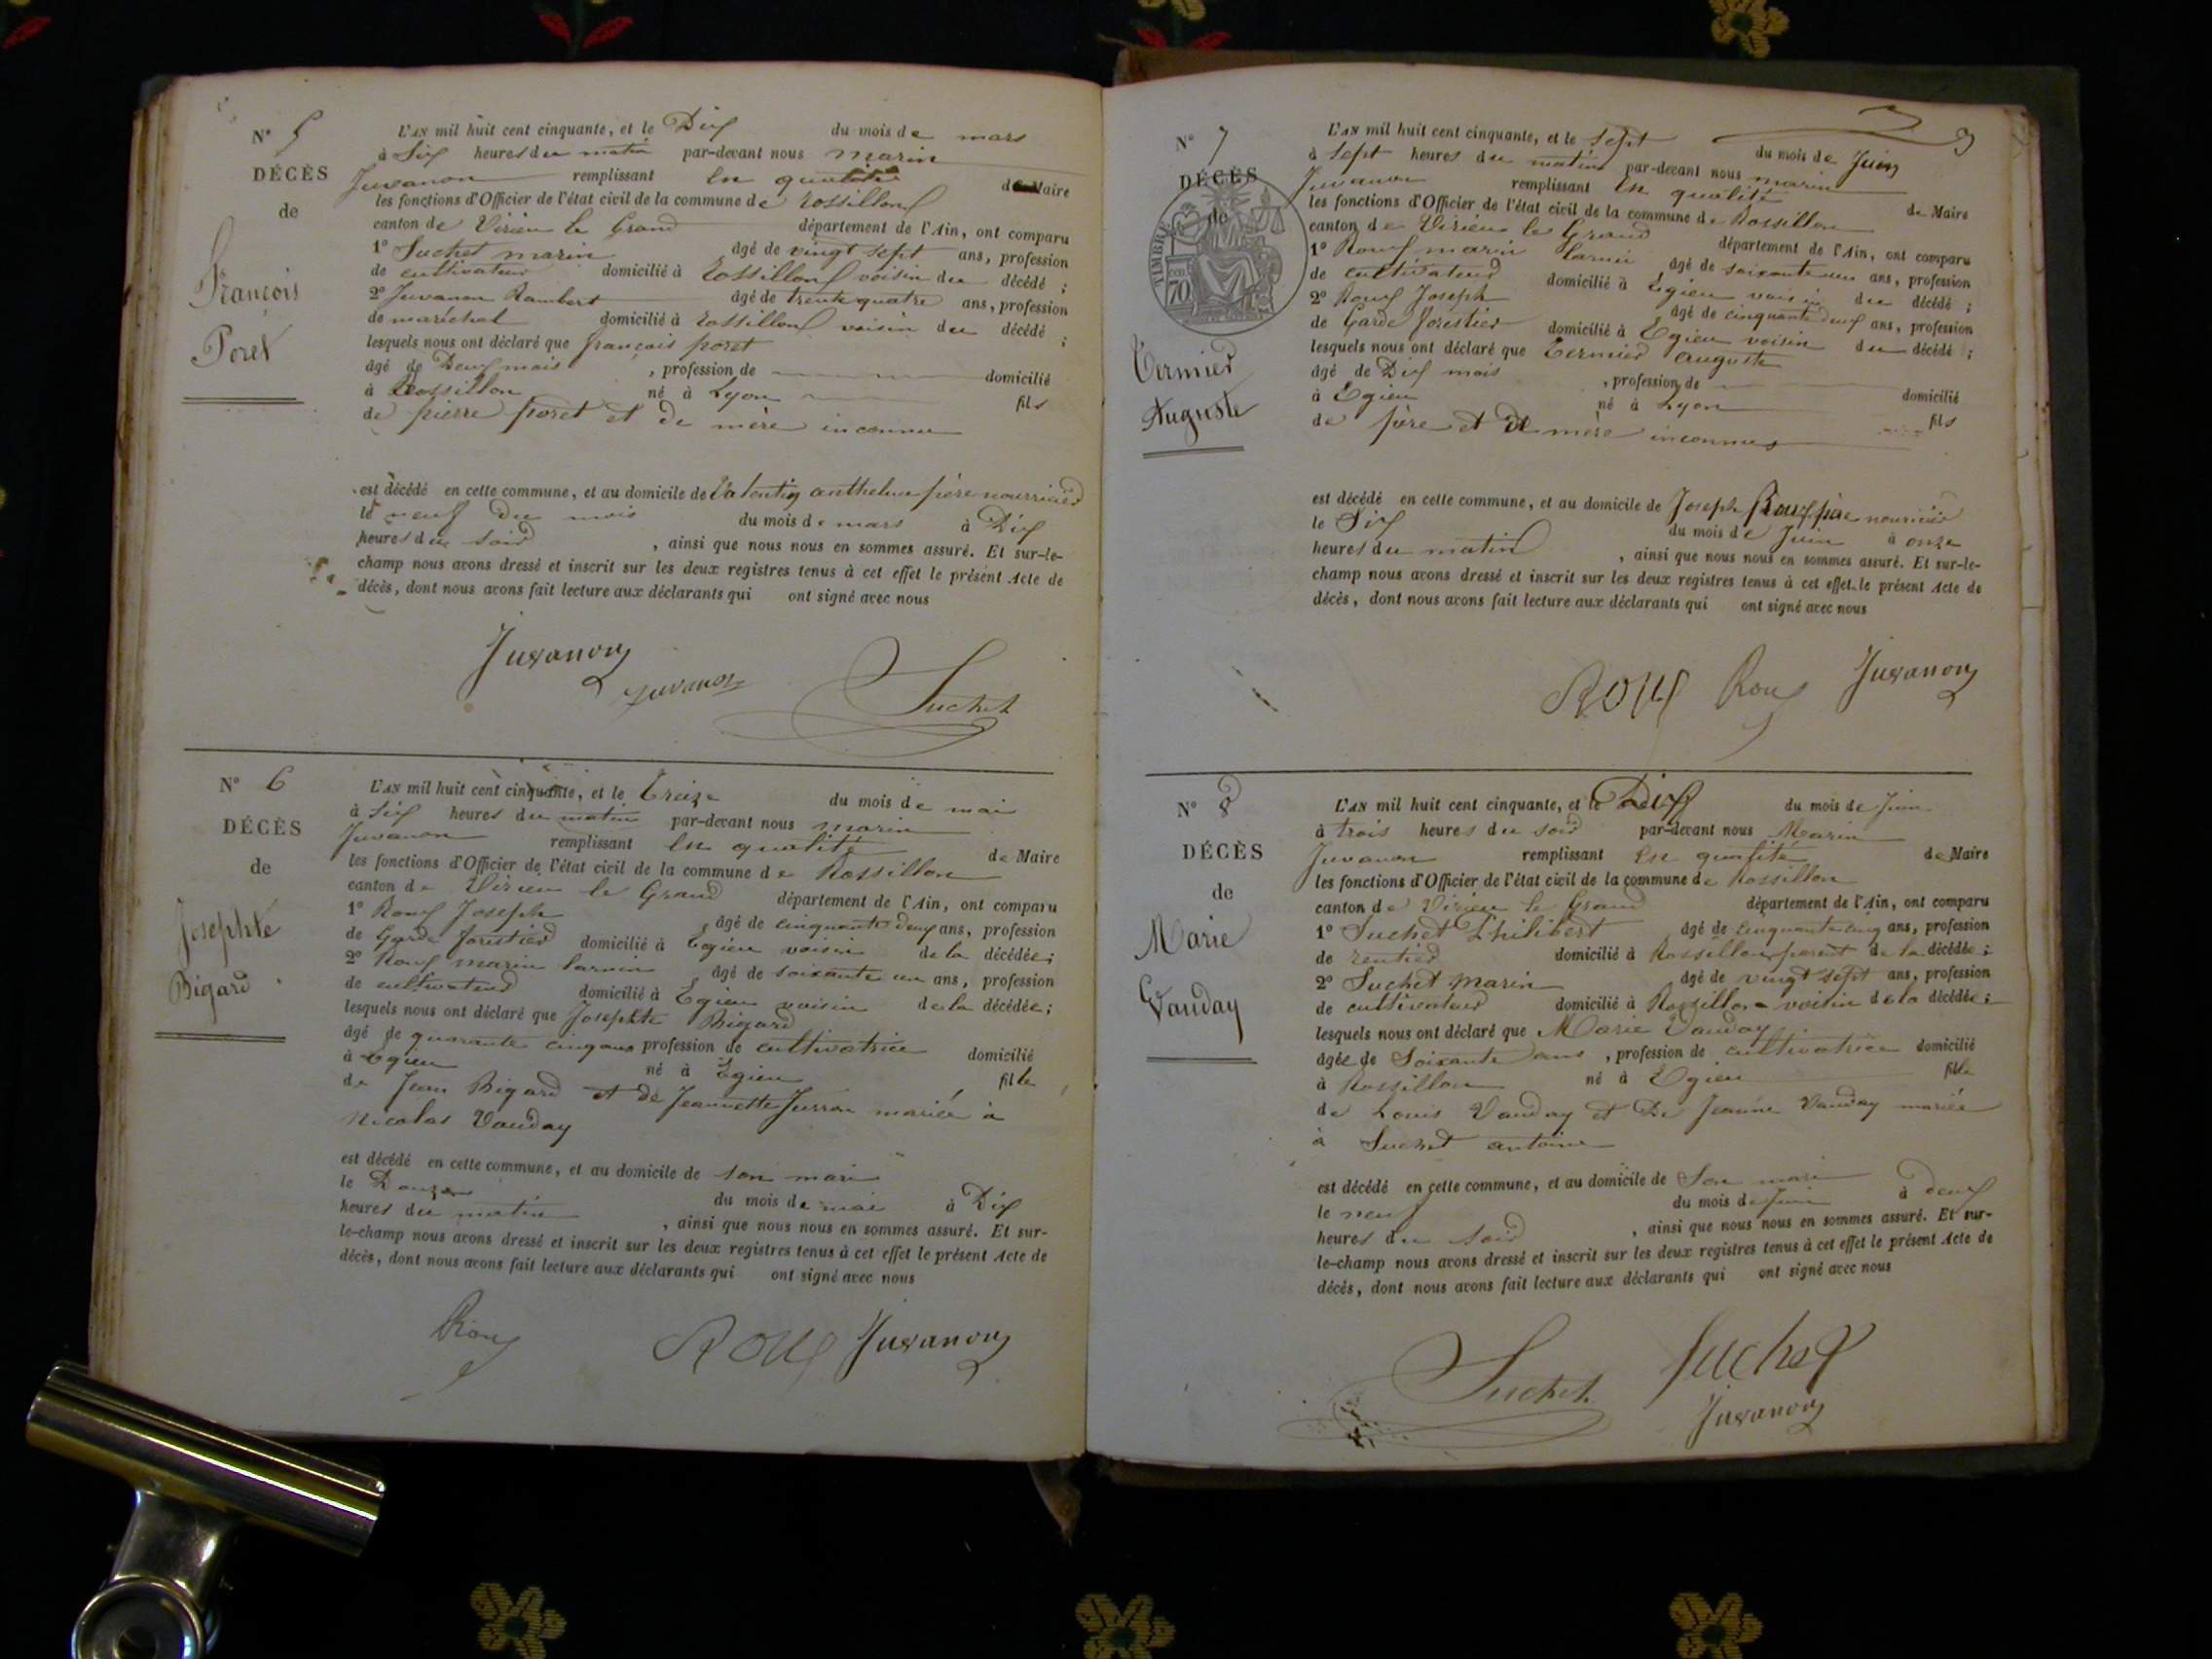 N° 5
DÉCÈS
de
François
Poret
L'AN mil huit cent cinquante, et le Dix du mois de mars
à Six heures du matin par-devant nous marin
Juvanon remplissant en qualité de Maire
les fonctions d'Officier de l'état civil de la commune de rossillon
canton de Virieu le Grand département de l'Ain, ont comparu
1° Suchet marin âgé de vingt sept ans, profession
de cultivateur domicilié à rossillon voisin du décédé ;
2° Juvanon Rambert âgé de trente quatre ans, profession
de maréchal domicilié à rossillon voisin du décédé ;
lesquels nous ont déclaré que françois poret
âgé de Deux mois , profession de domicilié
à Rossillon né à Lyon fils
de pierre poret et de mère inconnue
est décédé en cette commune, et au domicile de Valentin anthelme père nourricier
le neuf du mois du mois de mars à Dix
heures du soir , ainsi que nous nous en sommes assuré. Et sur-le-
champ nous avons dressé et inscrit sur les deux registres tenus à cet effet le présent Acte de
décès, dont nous avons fait lecture aux déclarants qui ont signé avec nous
Juvanon
Juvanon
Suchet
N° 6
DÉCÈS
de
Josephte
Bigard
L'AN mil huit cent cinquante, et le treize du mois de mai
à Six heures du matin par-devant nous marin
Juvanon remplissant en qualité de Maire
les fonctions d'Officier de l'état civil de la commune de Rossillon
canton de Virieu le Grand département de l'Ain, ont comparu
1° Roux Joseph âgé de cinquante deux ans, profession
de Garde forestier domicilié à Egieu voisin de la décédée ;
2° Roux marin âgé de soixante un ans, profession
de cultivateur domicilié à Egieu voisin de la décédée ;
lesquels nous ont déclaré que Josephte Bigard
âgé de quarante cinq ans profession de cultivatrice domicilié
à Egieu né à Egieu fille
de Jean Bigard et de Jeannette mariée à
Nicolas Vauday
est décédé en cette commune, et au domicile de son mari
le Douze du mois de mai à Dix
heures du matin , ainsi que nous nous en sommes assuré. Et sur-
le-champ nous avons dressé et inscrit sur les deux registres tenus à cet effet le présent Acte de
décès, dont nous avons fait lecture aux déclarants qui ont signé avec nous
Roux
ROUX
Juvanon
3
N° 7
DÉCÈS
de
TIMBRE
70
Termier
Auguste
L'AN mil huit cent cinquante, et le Sept du mois de Juin
à Sept heures du matin par-devant nous marin
Juvanon remplissant en qualité de Maire
les fonctions d'Officier de l'état civil de la commune de Rossillon
canton de Virieu le Grand département de l'Ain, ont comparu
1° Roux marin âgé de soixante un ans, profession
de cultivateur domicilié à Egieu voisin du décédé ;
2° Roux Joseph âgé de cinquante deux ans, profession
de Garde forestier domicilié à Egieu voisin du décédé ;
lesquels nous ont déclaré que Termier auguste
âgé de Dix mois , profession de domicilié
à Egieu né à Lyon fils
de père et de mère inconnus
est décédé en cette commune, et au domicile de Joseph Roux père nourricier
le Six du mois de Juin à onze
heures du matin , ainsi que nous nous en sommes assuré. Et sur-le-
champ nous avons dressé et inscrit sur les deux registres tenus à cet effet le présent Acte de
décès, dont nous avons fait lecture aux déclarants qui ont signé avec nous
ROUX
Roux
Juvanon
N° 8
DÉCÈS
de
Marie
Vauday
L'AN mil huit cent cinquante, et le Dix du mois de Juin
à trois heures du soir par-devant nous Marin
Juvanon remplissant en qualité de Maire
les fonctions d'Officier de l'état civil de la commune de Rossillon
canton de Virieu le Grand département de l'Ain, ont comparu
1° Suchet Philibert âgé de cinquante cinq ans, profession
de rentier domicilié à Rossillon parent de la décédée ;
2° Suchet marin âgé de vingt sept ans, profession
de cultivateur domicilié à Rossillon voisin de la décédée ;
lesquels nous ont déclaré que Marie Vauday
âgée de Soixante ans , profession de cultivatrice domicilié
à Rossillon né à Egieu fille
de Louis Vauday et De Jeanne Vauday mariée
à Suchet antoine
est décédé en cette commune, et au domicile de Son mari
le neuf du mois de Juin à deux
heures du soir , ainsi que nous nous en sommes assuré. Et sur-
le-champ nous avons dressé et inscrit sur les deux registres tenus à cet effet le présent Acte de
décès, dont nous avons fait lecture aux déclarants qui ont signé avec nous
Suchet
Suchet
Juvanon